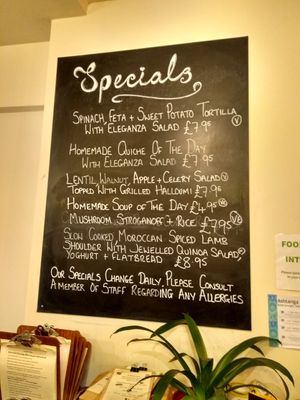 Specials
Spinach, Feta + Sweet Potato Tortilla
With Eleganza Salad £7.95 V
Homemade Quiche Of The Day
With Eleganza Salad £7.95
Lentil, Walnut, Apple + Celery Salad V
Topped With Grilled Halloumi £7.95
Homemade Soup of the Day £4.95
Mushroom Stroganoff + Rice £7.95
Slow Cooked, Moroccan Spiced Lamb
Shoulder With Jewelled Quinoa Salad
Yoghurt + Flatbread £8.95
Our Specials Change Daily, Please Consult
A Member Of Staff Regarding Any Allergies
FOO
INT